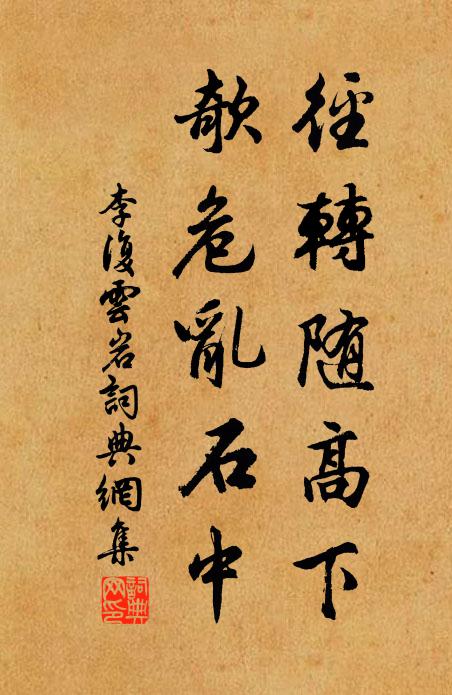 徑轉随高下
欹危亂石中
李復雲岩詞典網集
詞典网印